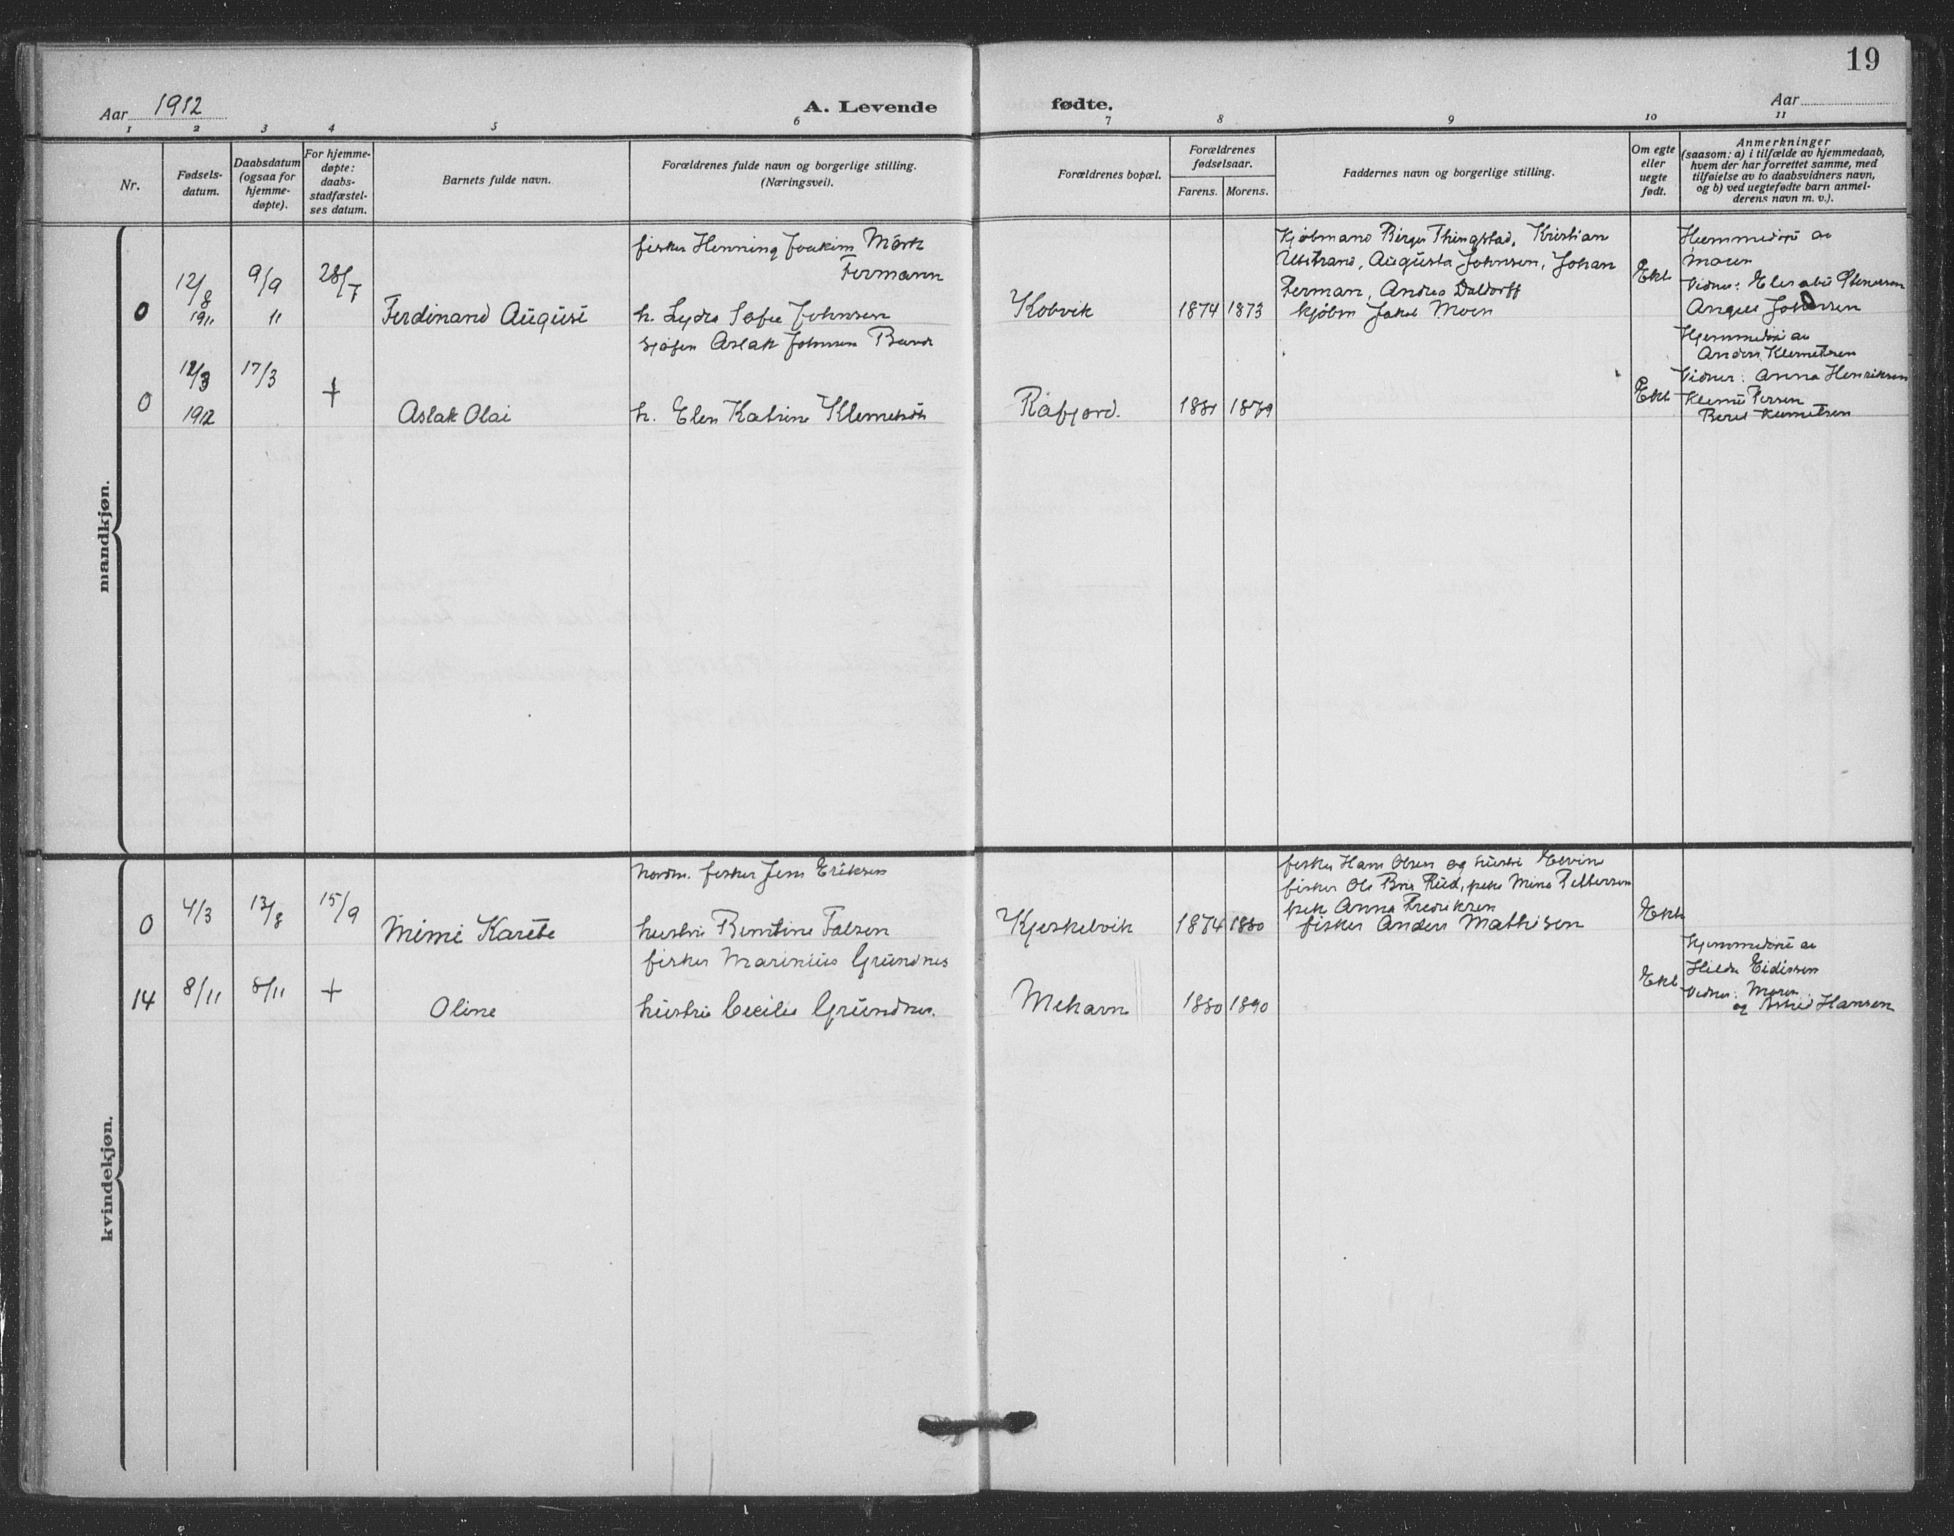 19
Aar 1912
A. Levende fødte.
Aar
1 2 3 4 5 6 7 8 9 10 11
Nr.
Fødsels-
datum.
Daabsdatum
(ogsaa for
hjemme-
døpte).
For hjemme-
døpte:
daabs-
stadfæstel-
ses datum.
Barnets fulde navn.
Forældrenes fulde navn og borgerlige stilling.
(Næringsvei).
Forældrenes bopæl.
Forældrenes
fødselsaar.
Farens. Morens.
Faddernes navn og borgerlige stilling.
Om egte
eller
uegte
født.
Anmerkninger
(saasom: a) i tilfælde av hjemmedaab,
hvem der har forrettet samme, med
tilføielse av to daabsvidners navn,
og b) ved uegtefødte barn anmel-
derens navn m. v.).
mandkjøn.
0
12/8
1911
9/9
11
28/7
Ferdinand August
fisker Henning Joakim Mörk
Fermann
h. Lydia Sofie Johnsen
Kobvik
1874 1873
Kjøbmand Birger Thingstad, Kristian
Utstrand, Augusta Johnsen, Johan
Ferman, Andrea Daldorff
kjøbm Jakob Moen
Ekt
Hjemmedøpt av
moren
Vidner: Elisabet Stenersen
Angel Johansen
0
12/3
1912
17/3
+
Aslak Olai
sjøfin Aslak Johnsen
h. Elen Katrine Klemetsdt
Råfjord.
1881 1879
Ekt
Hjemmedøpt av
Anders Klemetsen
Vidner: Anna Henriksen
Klemet Persen
Beret Klemetsen
kvindekjøn.
0
4/3
13/8
15/9
Mimi Karete
nordm. fisker Jens Eriksen
hustru Bentine Falsen
Kjeskelvik
1874 1880
fisker Hans Olsen og hustru Elvine
fisker Ole Rud, Mina Pettersen
Anna Fredriksen
fisker Anders Mathisen
Ekt
14
8/11
8/11
+
Oline
fisker Marinius Grundnes
hustru Cecilie Grundnes.
Mehavn
1880 1890
Ekt
Hjemmedøpt av
Hilda Eidissen
Vidner: Moren
og Astrid Hansen